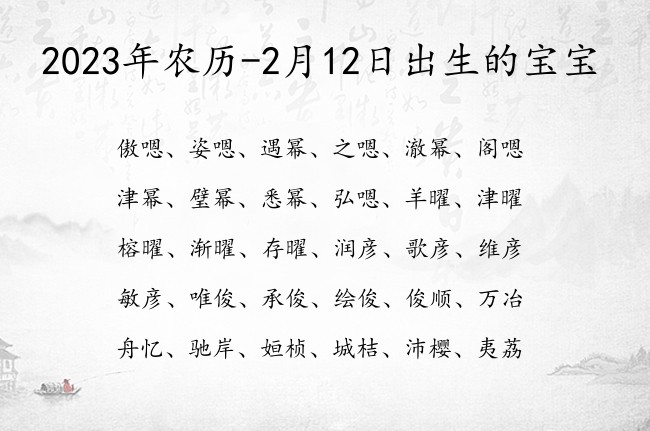 2023年农历-2月12日出生的宝宝
傲嗯、姿嗯、遇幂、之嗯、澈幂、阁嗯
津幂、璧幂、悉幂、弘嗯、羊曜、津曜
榕曜、渐曜、存曜、润彦、歌彦、维彦
敏彦、唯俊、承俊、绘俊、俊顺、万冶
舟忆、驰岸、姮桢、城桔、沛樱、夷荔